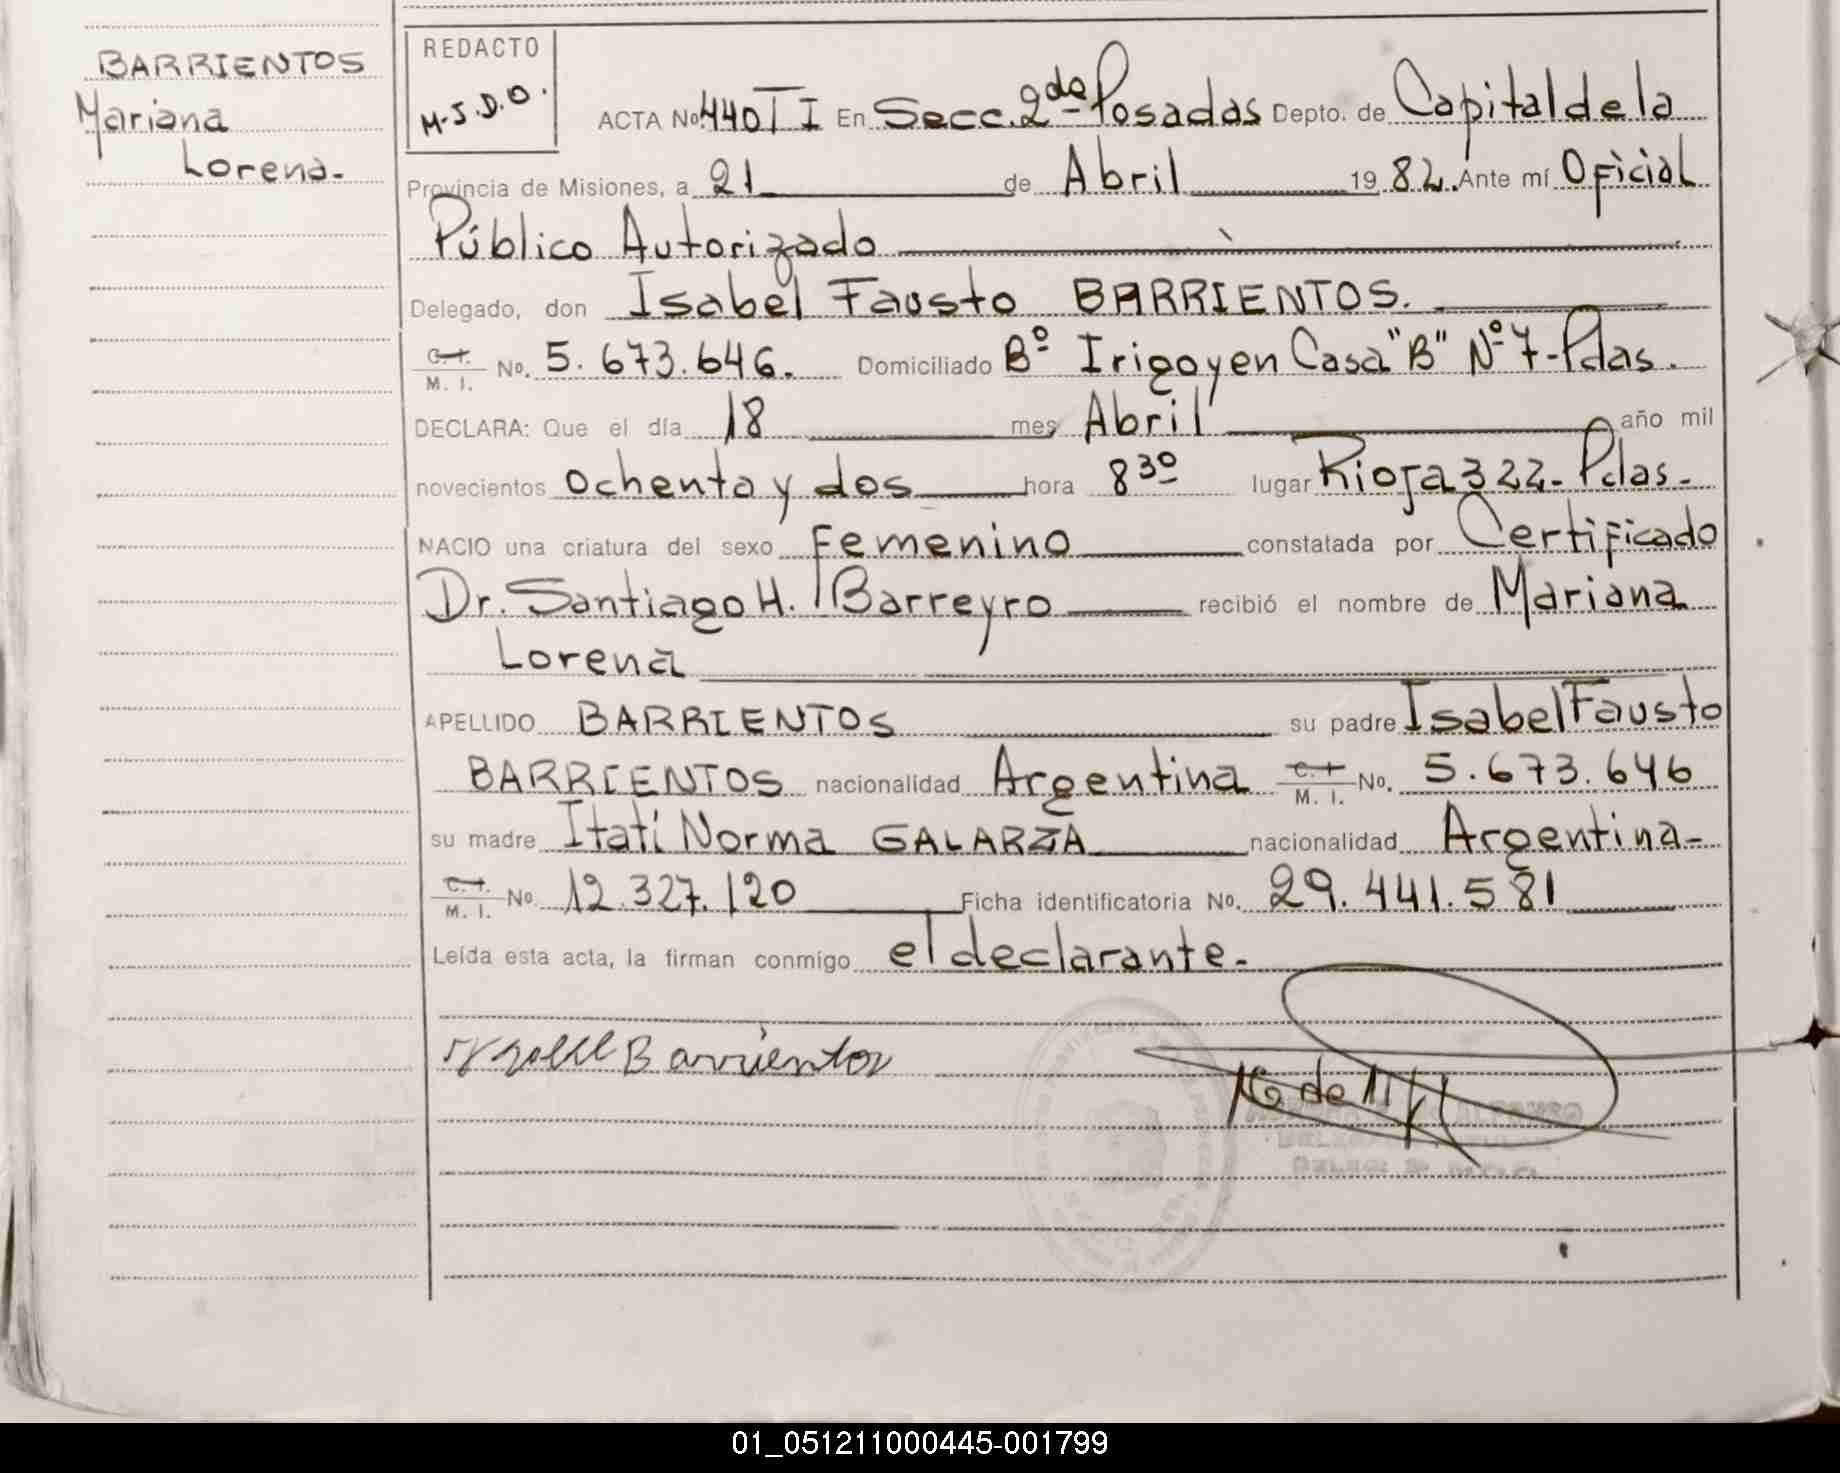 BARRIENTOS
Mariana
Lorena-
REDACTO
M.S.D.O.
ACTA No. 440 T I En Secc. 2da Posadas Depto. de Capital de la
Provincia de Misiones, a 21 de Abril 19 82. Ante mí Oficial
Público Autorizado
Delegado, don Isabel Fausto BARRIENTOS.
C.I. M. I. No. 5.673.646. Domiciliado Bº Irigoyen Casa "B" Nº 7-Pdas.
DECLARA: Que el día 18 mes Abril año mil
novecientos Ochenta y dos hora 8 30 lugar Rioja 322- Pdas-
NACIO una criatura del sexo Femenino constatada por Certificado
Dr. Santiago H. Barreyro recibió el nombre de Mariana
Lorena
APELLIDO BARRIENTOS su padre Isabel Fausto
BARRIENTOS nacionalidad Argentina C.I. M. I. No. 5.673.646
su madre Itatí Norma GALARZA nacionalidad Argentina-
C.I. M. I. No. 12.327.120 Ficha identificatoria No. 29.441.581
Leída esta acta, la firman conmigo el declarante.-
Barrientos
01_051211000445-001799